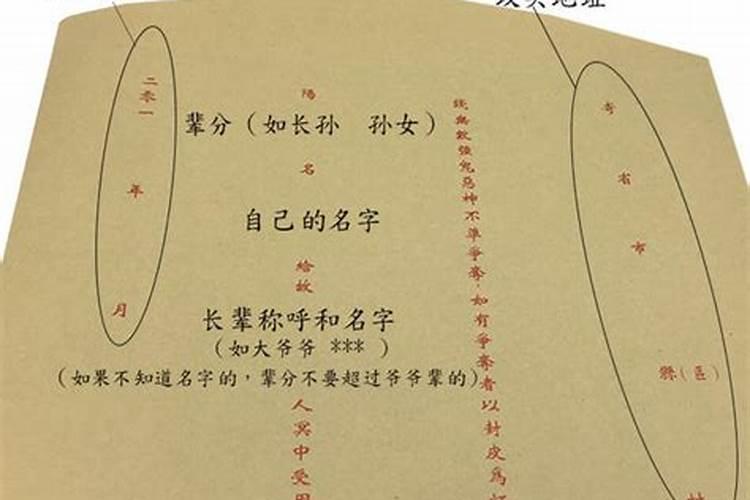 省市縣(區)
錢無數強鬼惡神不準爭奪，如有爭奪者以封皮爲
陽
辈分（如长孙 孙女）
名
自己的名字
給故
长辈称呼和名字
（如大爷爷 *** ）
（如果不知道名字的，辈分不要超过爷爷辈的）
人冥中受用
二零一年月